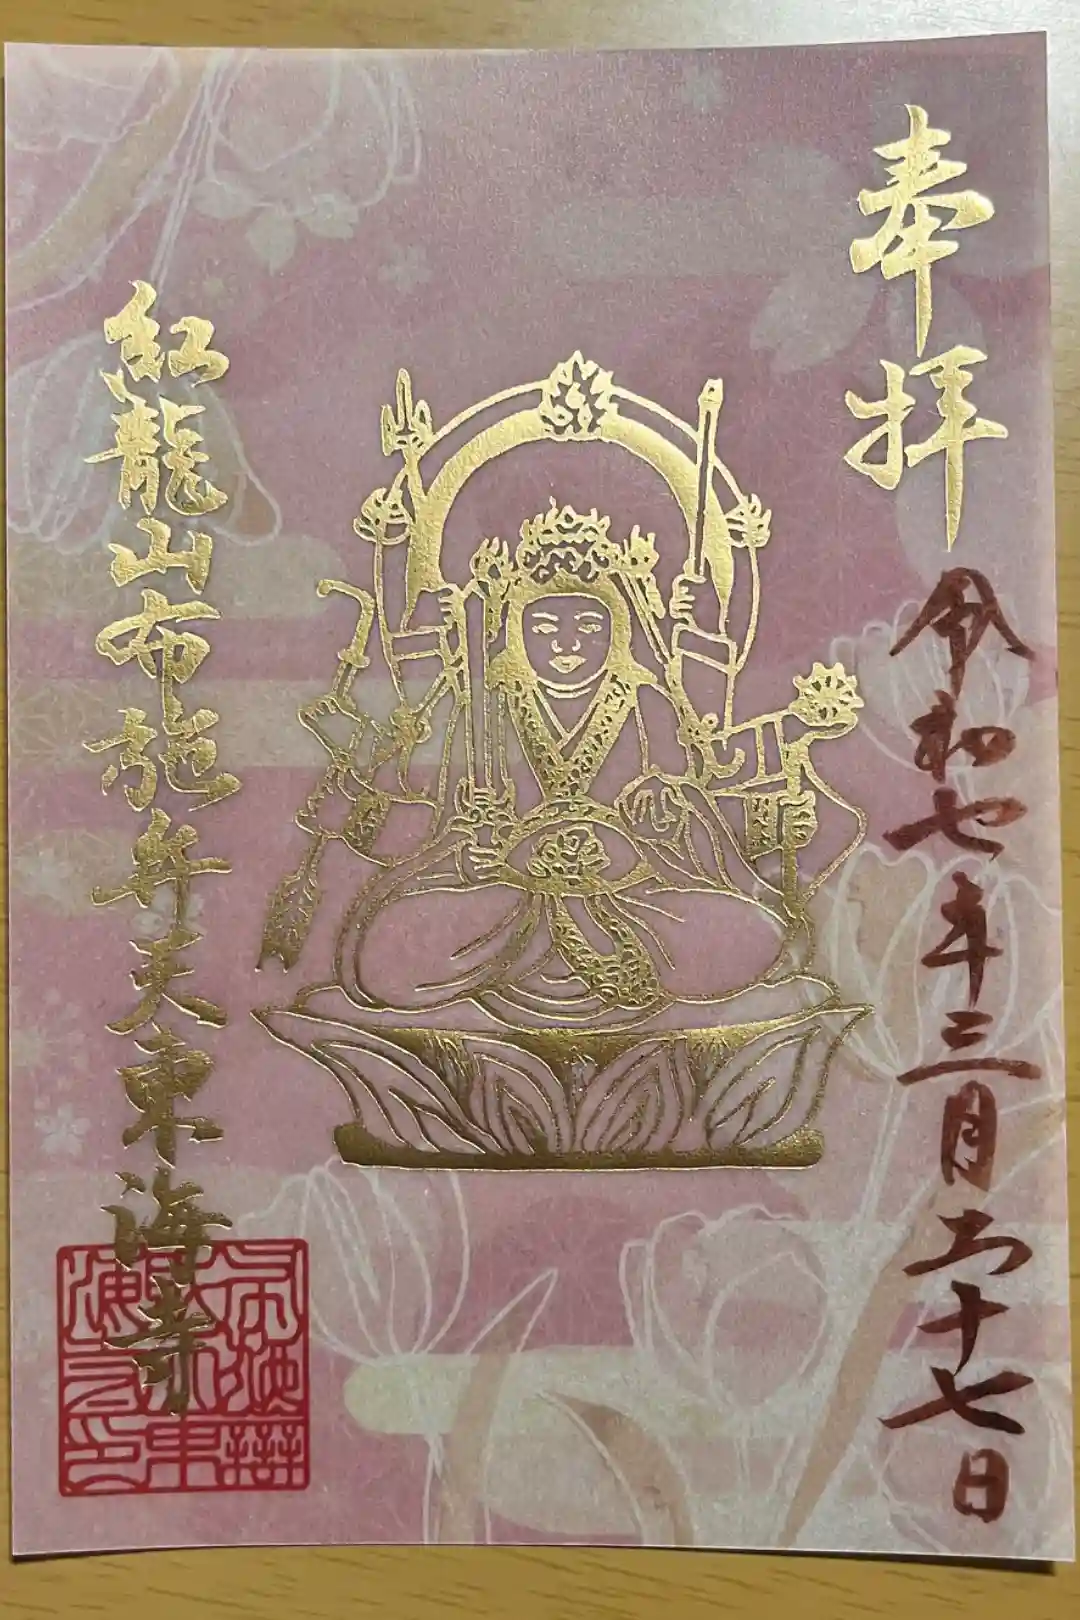 奉拝
令和七年三月二十七日
紅龍山布施弁天東海寺